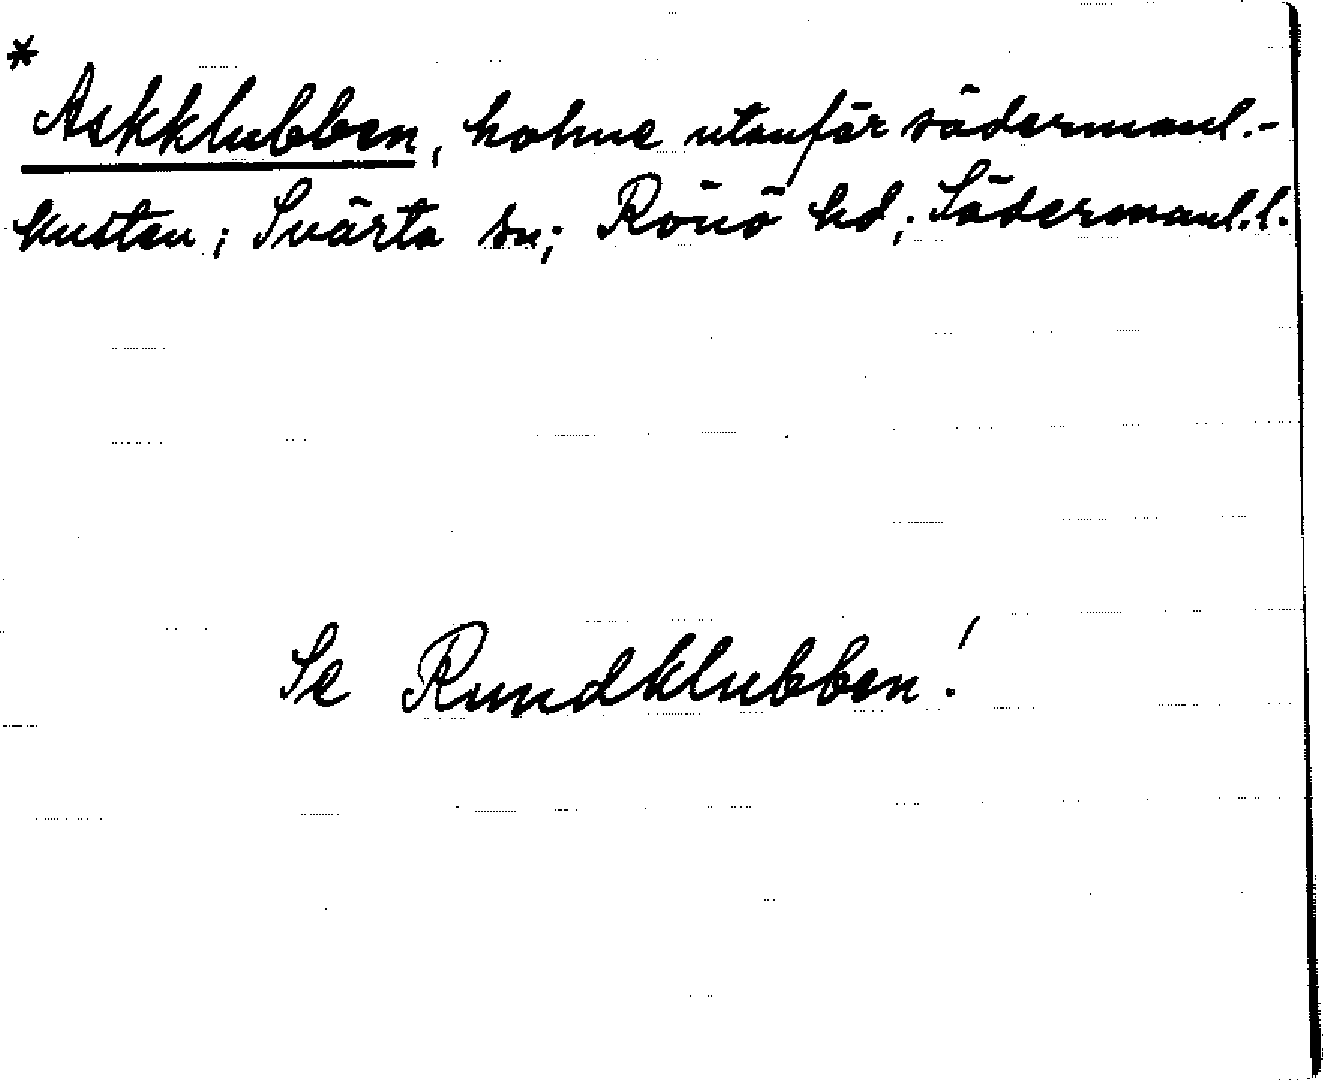 * Askklubben, holme utanför södermanl.-
kusten; Svärta sn; Rönö hd; Södermanl.l.
Se Rundklubben!